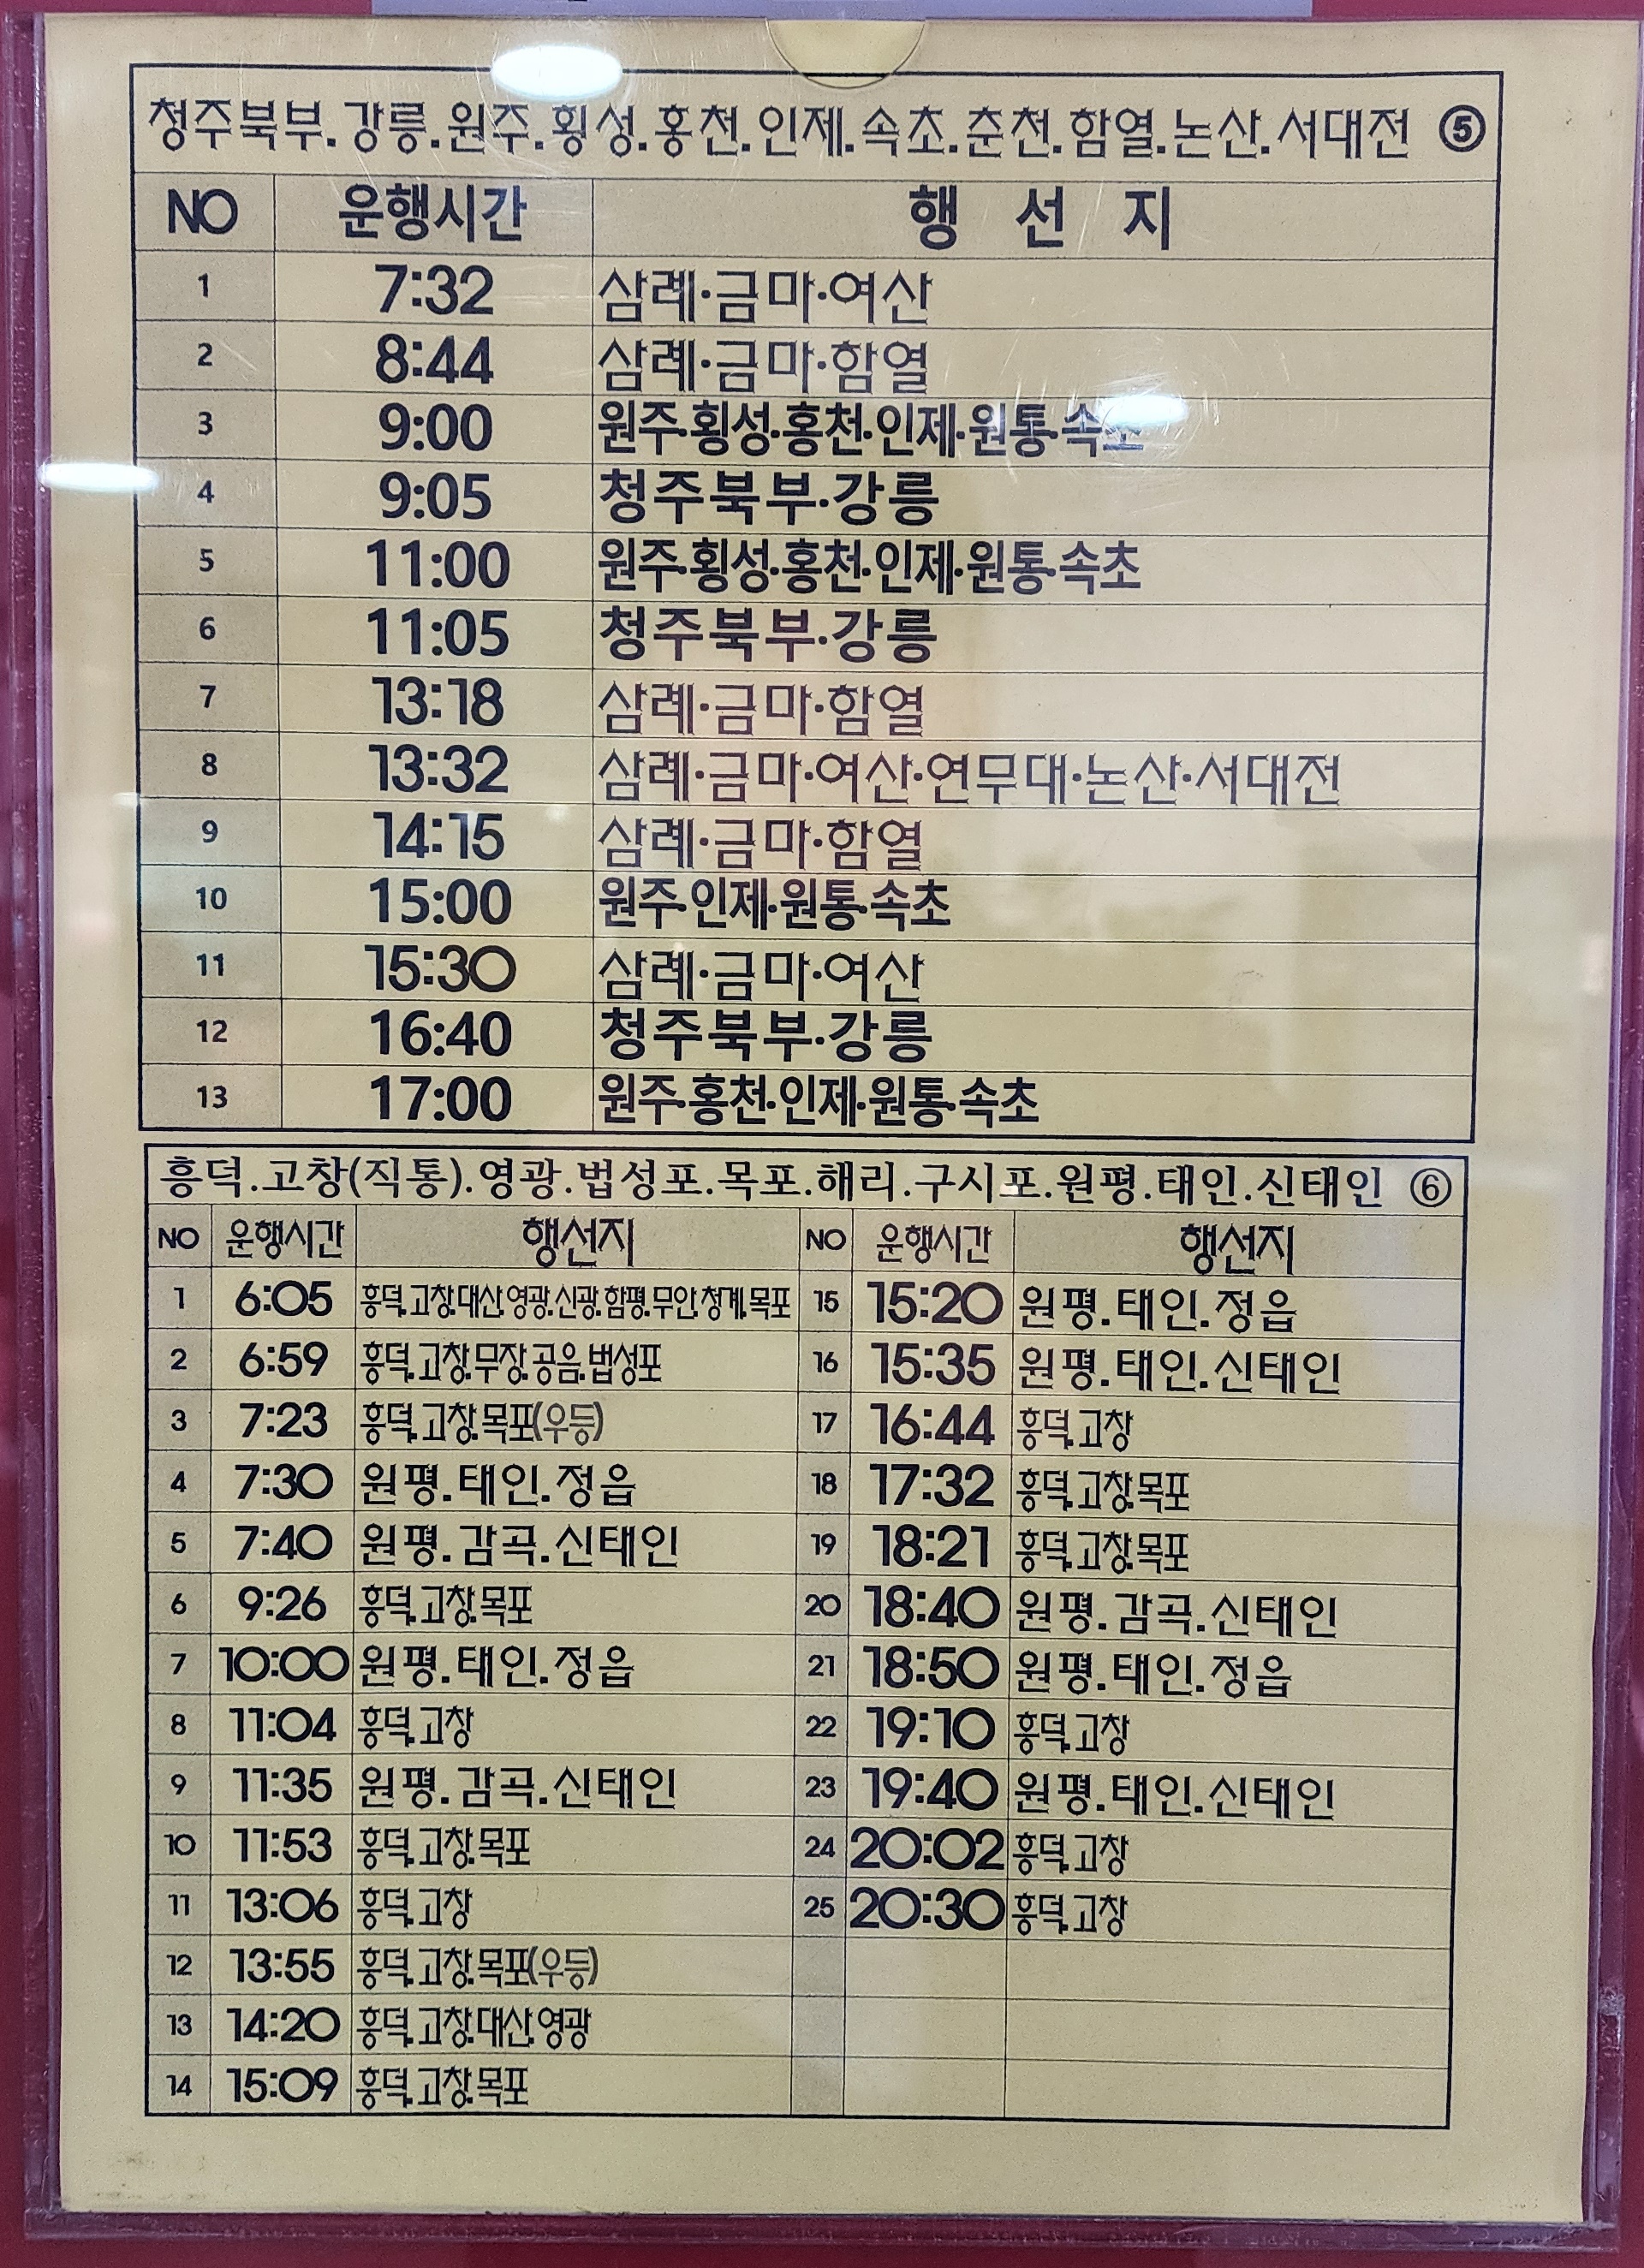 청주북부.강릉.원주.횡성.홍천.인제.속초.춘천.함열.논산.서대전 ⑤
NO 운행시간 행 선 지
1 7:32 삼례·금마·여산
2 8:44 삼례·금마·함열
3 9:00 원주·횡성·홍천·인제·원통·속초
4 9:05 청주북부·강릉
5 11:00 원주·횡성·홍천·인제·원통·속초
6 11:05 청주북부·강릉
7 13:18 삼례·금마·함열
8 13:32 삼례·금마·여산·연무대·논산·서대전
9 14:15 삼례·금마·함열
10 15:00 원주·인제·원통·속초
11 15:30 삼례·금마·여산
12 16:40 청주북부·강릉
13 17:00 원주·홍천·인제·원통·속초
흥덕.고창(직통).영광.법성포.목포.해리.구시포.원평.태인.신태인 ⑥
NO 운행시간 행선지 NO 운행시간 행선지
1 6:05 흥덕.고창.대산.영광.신광.함평.무안.청계.목포 15 15:20 원평.태인.정읍
2 6:59 흥덕.고창.무장.공음.법성포 16 15:35 원평.태인.신태인
3 7:23 흥덕.고창.목포(우등) 17 16:44 흥덕.고창
4 7:30 원평.태인.정읍 18 17:32 흥덕.고창.목포
5 7:40 원평.감곡.신태인 19 18:21 흥덕.고창.목포
6 9:26 흥덕.고창.목포 20 18:40 원평.감곡.신태인
7 10:00 원평.태인.정읍 21 18:50 원평.태인.정읍
8 11:04 흥덕.고창 22 19:10 흥덕.고창
9 11:35 원평.감곡.신태인 23 19:40 원평.태인.신태인
10 11:53 흥덕.고창.목포 24 20:02 흥덕.고창
11 13:06 흥덕.고창 25 20:30 흥덕.고창
12 13:55 흥덕.고창.목포(우등)
13 14:20 흥덕.고창.대산.영광
14 15:09 흥덕.고창.목포